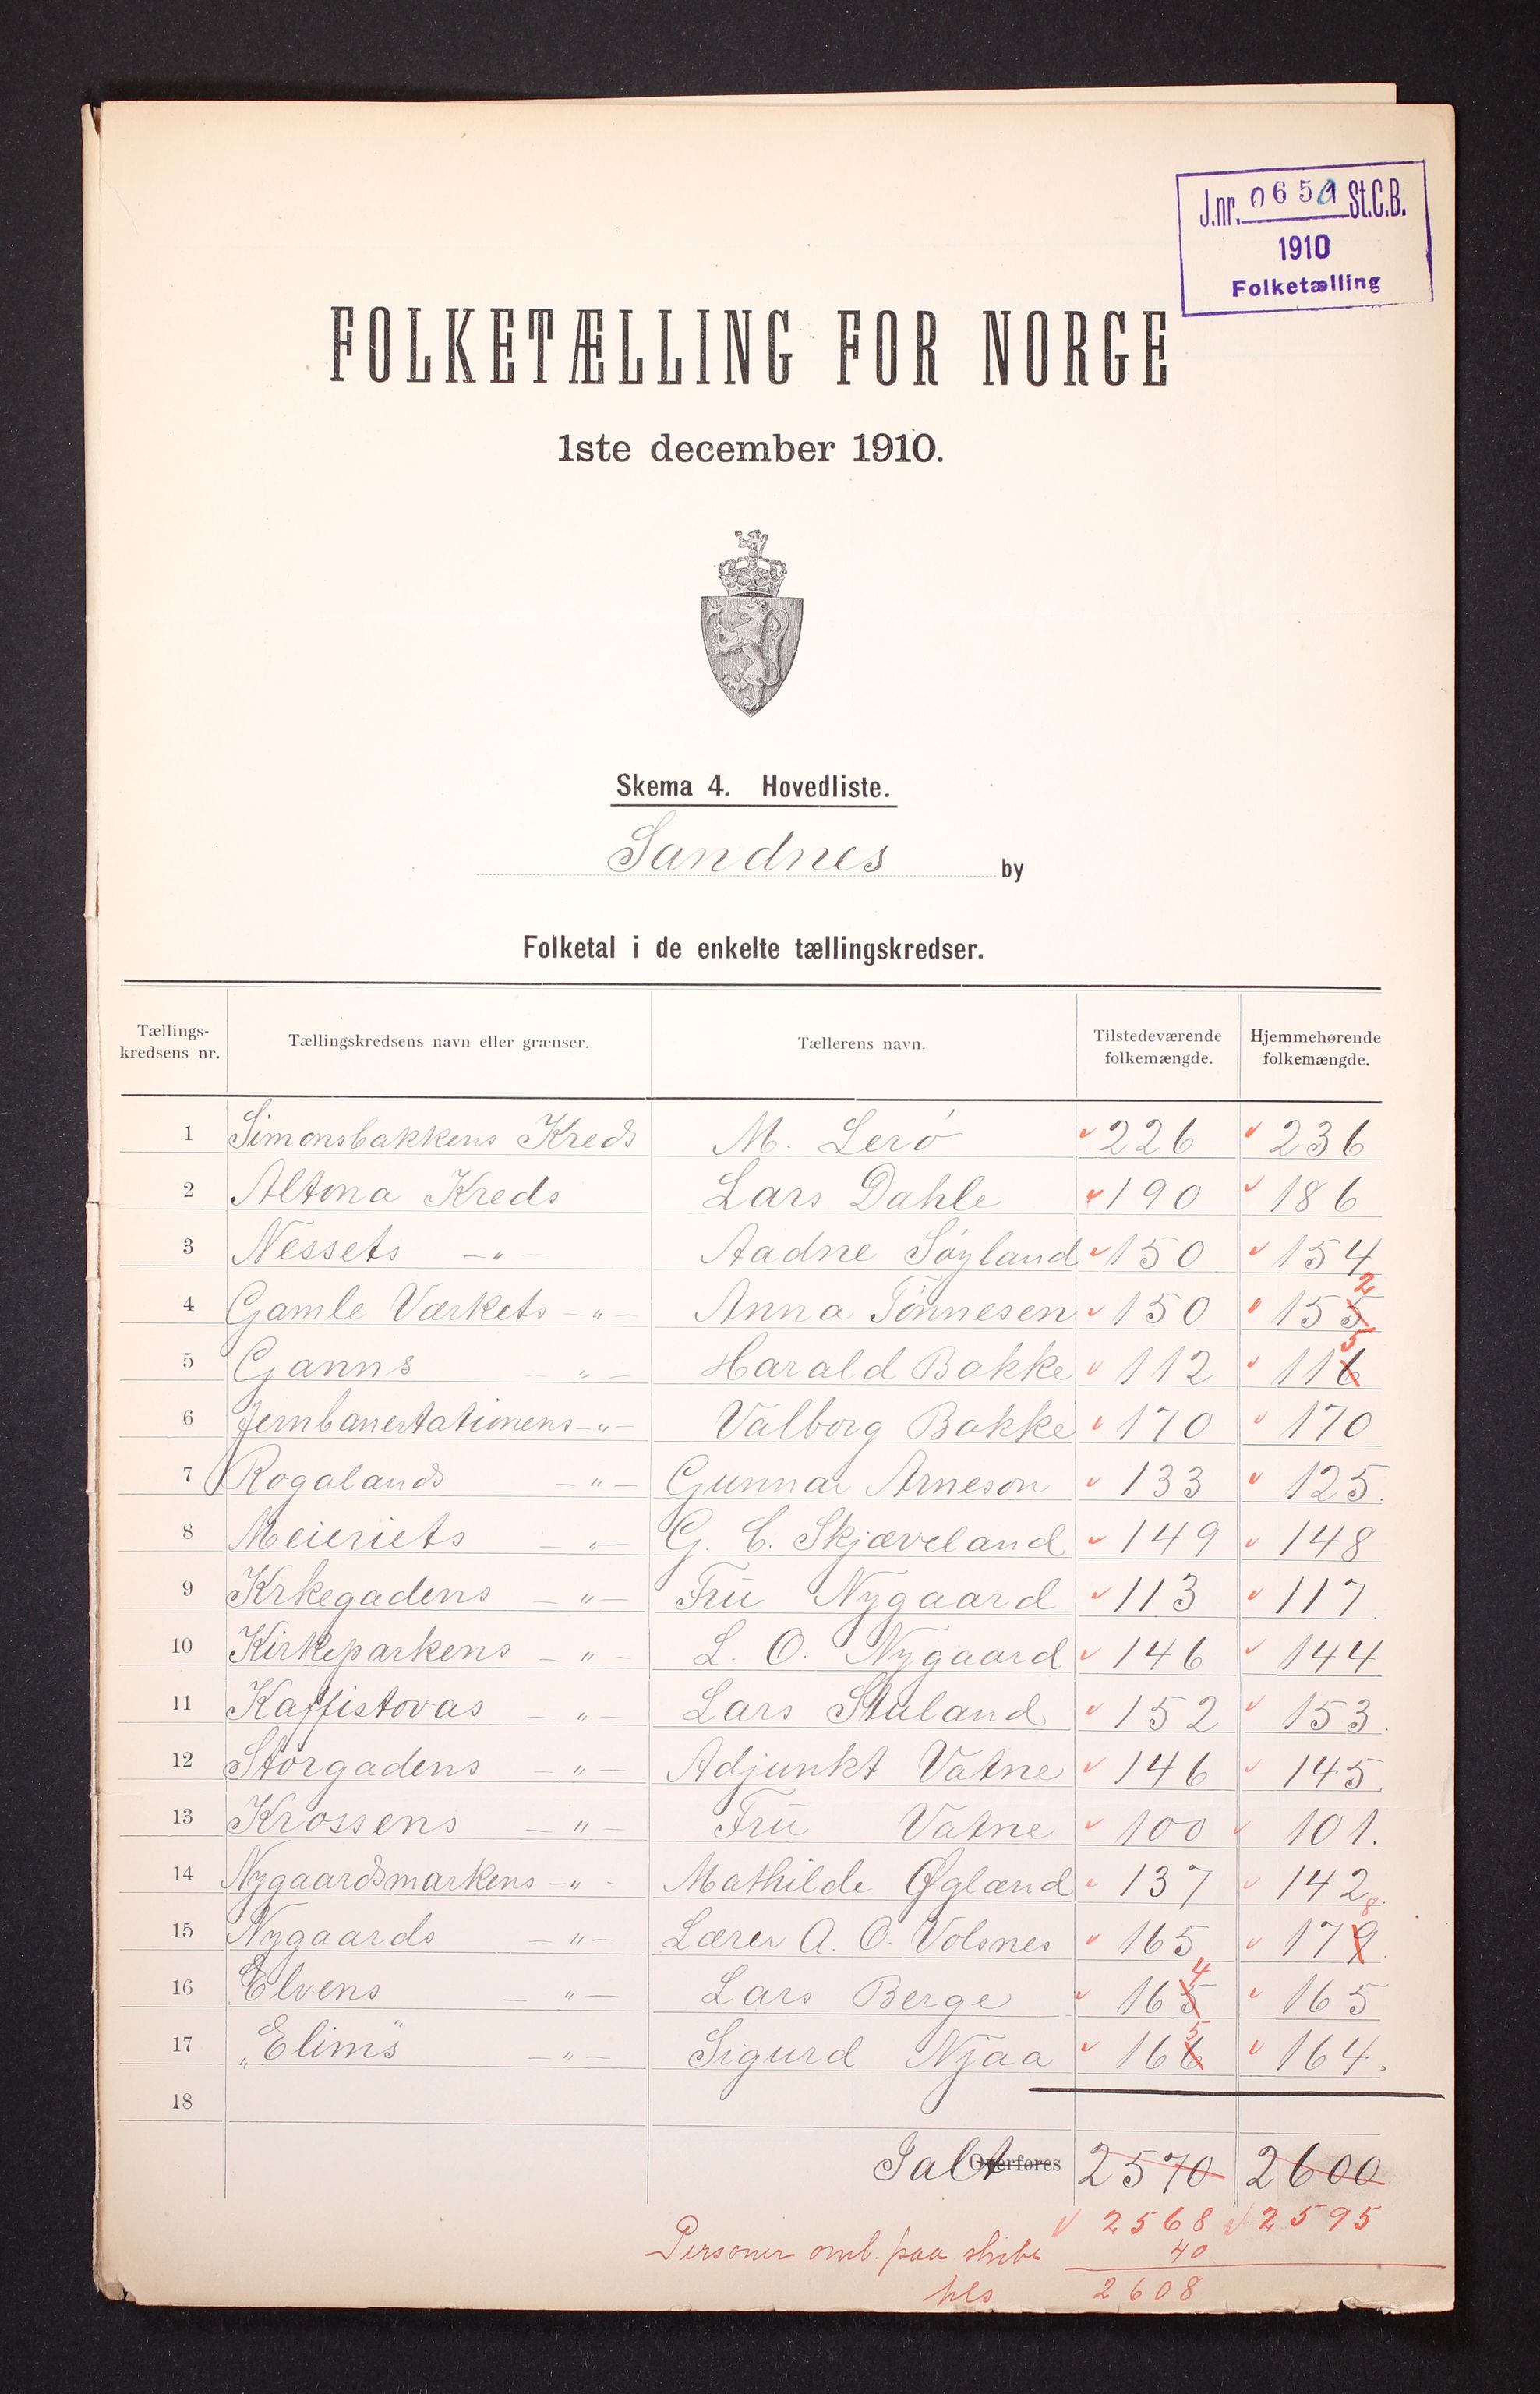 J.nr. 0650 St.C.B.
1910
Folketælling
FOLKETÆLLING FOR NORGE
1ste december 1910.
Skema 4. Hovedliste.
Sandnes by
Folketal i de enkelte tællingskredser.
Tællings-kredsens nr. Tællingskredsens navn eller grænser. Tællerens navn. Tilstedeværende folkemængde. Hjemmehørende folkemængde.
1 Simonsbakkens Kreds M. Lerö 226 236
2 Altona Kreds Lars Dahle 190 186
3 Nessets —„— Aadne Söyland 150 154
4 Gamle Værkets —„— Anna Tönnesen 150 155 2
5 Ganns —„— Harald Bakke 112 116 5
6 Jernbanestationens —„— Valborg Bakke 170 170
7 Rogalands —„— Gunnar Arneson 133 125.
8 Meieriets —„— G. C. Skjæveland 149 148
9 Krkegadens —„— Fru Nygaard 113 117.
10 Kirkeparkens —„— L. O. Nygaard 146 144
11 Kaffistovas —„— Lars Staland 152 153.
12 Storgadens —„— Adjunkt Vatne 146 145.
13 Krossens —„— Fru Vatne 100 101.
14 Nygaardsmarkens —„— Mathilde Øglænd 137 142.
15 Nygaards —„— Lærer A. O. Volsnes 165 179 8
16 Elvens —„— Lars Berge 165 4 165
17 „Elims" —„— Sigurd Njaa 166 5 164.
18
Ialt Overføres 2570 2600
2568 2595
Personer oml. paa skibe 40
2608